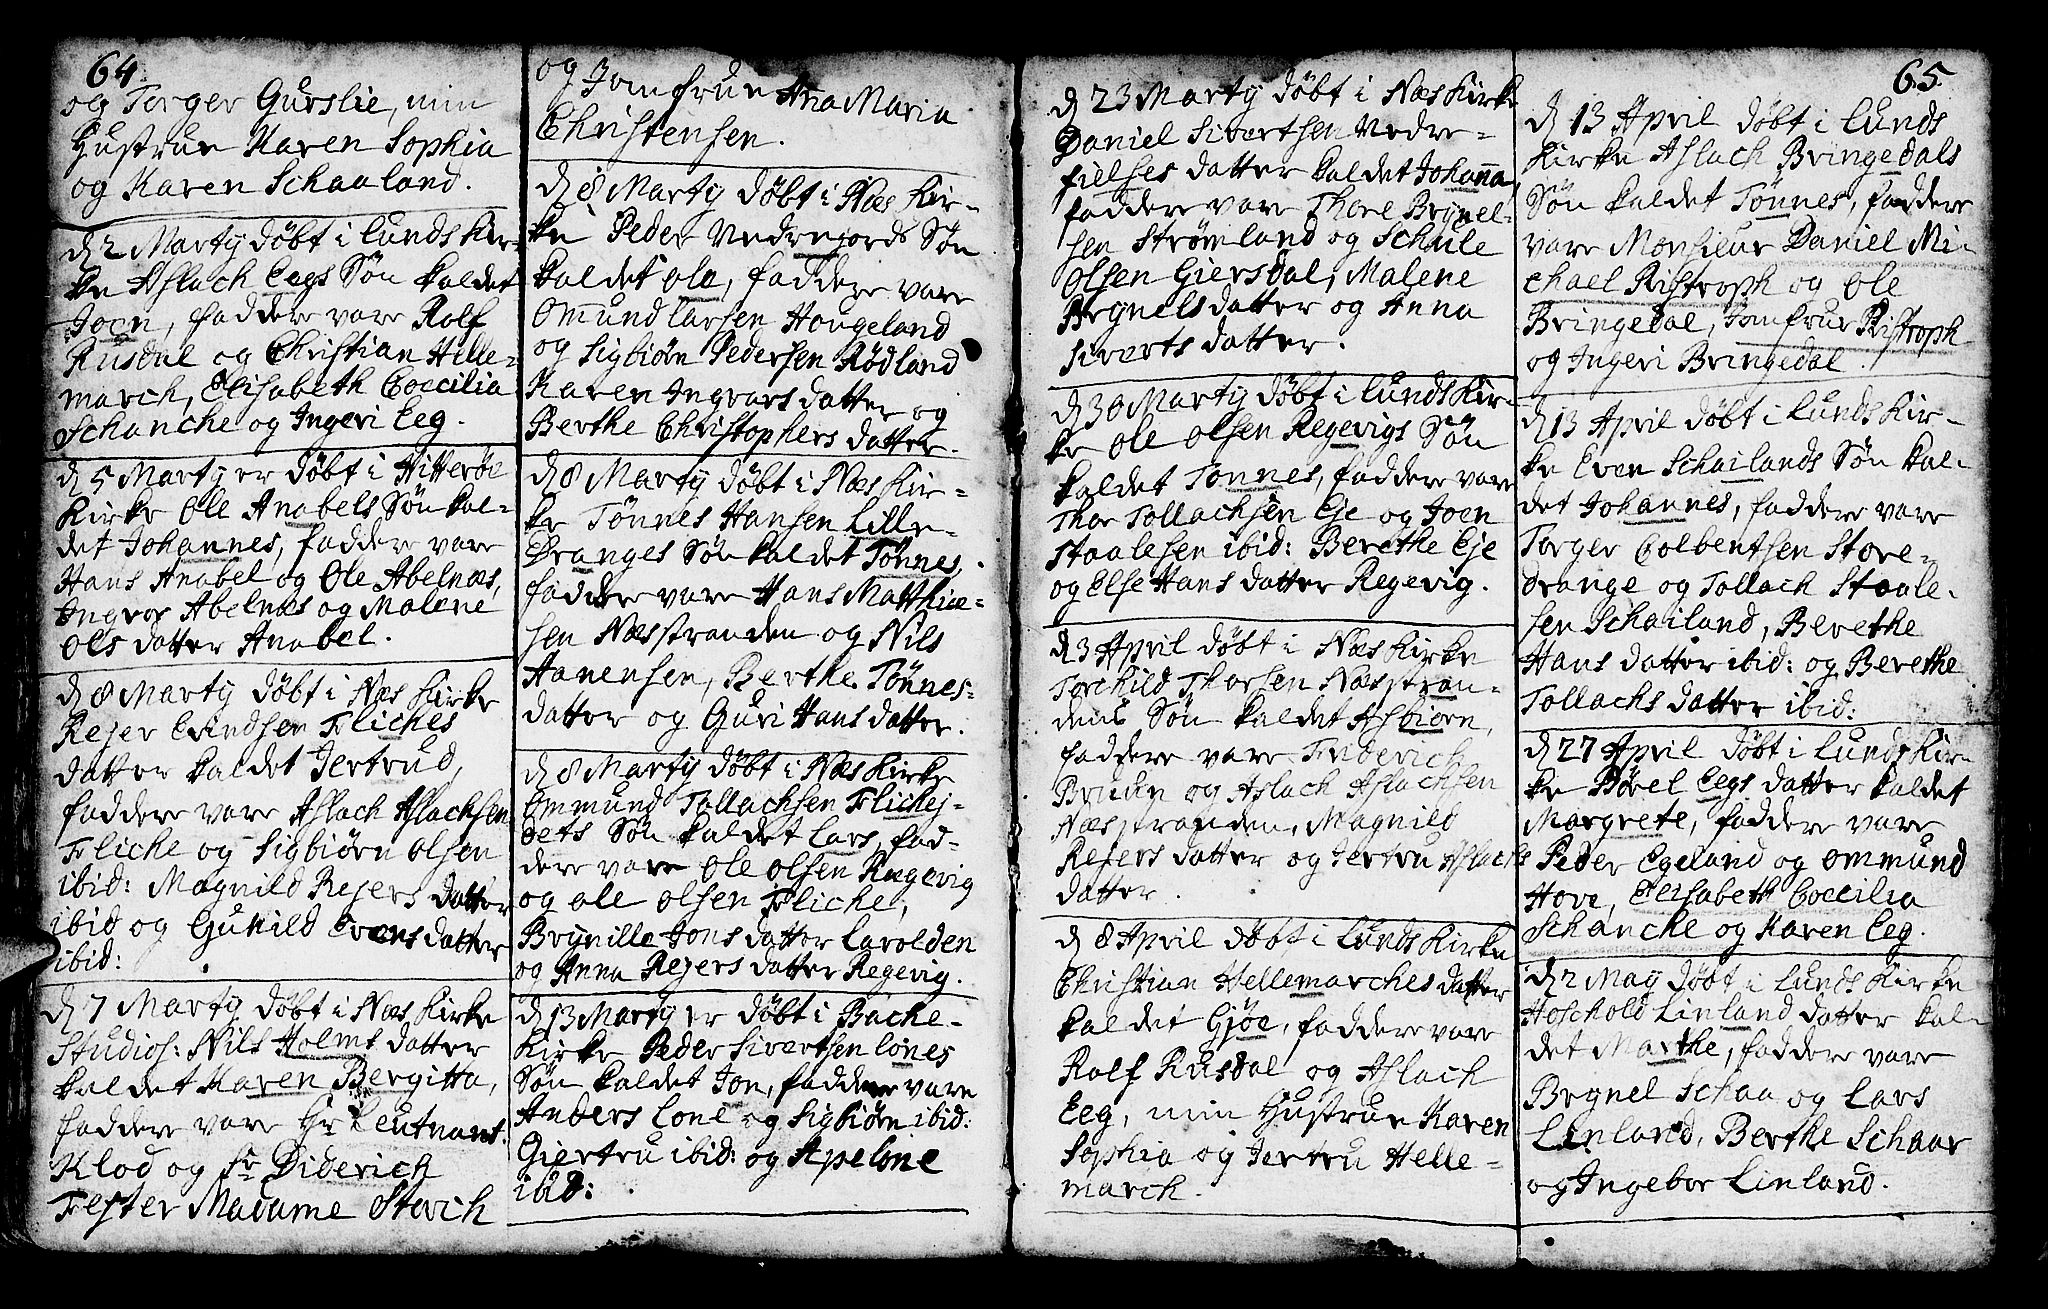 64.
og Torger Gurslie, min
Hustrue Karen Sophia
og Karen Schaaland.
d. 2 Martÿ døbt i Lunds Kir-
ke Aslach Eegs Søn kaldet
Joen, faddere vare Rolf
Rusdal og Christian Helle-
march, Elisabeth Coecilia
Schanche og Ingeri Eeg.
d. 5 Martÿ er døbt i Hitterøe
Kirke Ole Anabels Søn kal-
det Johannes, faddere vare
Hans Anabel og Ole Abelnæs,
Ingeror Abelnæs og Malene
Ols datter Anabel.
d. 8 Martÿ døbt i Næs Kirke
Rejer Evindsen Fliches
datter kaldet Jertrud,
faddere vare Aslach Aslachsen
Fliche og Sigbiørn Olsen
ibid: Magnild Rejers datter
ibid og Gunild Evensdatter
ibid:
d. 7 Martÿ døbt i Næs Kirke
Studios: Nils Holms datter
kaldet Karen Bergitta,
faddere vare Hr Leutnant
Klod og Sr Diderich
Fester Madame Storch
og Jomfrue Ana Maria
Christensen.
d. 8 Martÿ døbt i Næs Kir-
ke Peder Vedrefjords Søn
kaldet Ole, faddere vare
Ommund Larsen Hougeland
og Sigbiørn Pedersen Rødland
Karen Ingvars datter og
Berthe Christophers datter.
d. 8 Martÿ døbt i Næs Kir-
ke Tønnes Hansen Lille-
Dranges Søn kaldet Tønnes,
faddere vare Hans Matthie-
sen Næsstranden og Nils
Aanensen, Berthe Tønnes-
datter og Guri Hans datter.
d. 8 Martÿ døbt i Næs Kirke
Ommund Tollachsen Flichej-
dets Søn kaldet Lars, fad-
dere vare Ole Olsen Rægevig
og Ole Olsen Fliche,
Brÿnille Jons datter Larolden
og Anna Rejers datter Regevig.
d. 13 Martÿ er døbt i Bache-
Kirke Peder Sivertsen Lones
Søn kaldet Jon, faddere vare
Anders Lone og Sigbiørn ibid:
Giertru ibid: og Apelone
ibid:
d. 23 Martÿ døbt i Næs Kirke
Daniel Sivertsen Vedre-
fielses datter kaldet Johanna,
faddere vare Thore Brÿnel-
sen Strømland og Schule
Olsen Giersdal, Malene
Brÿnelsdatter og Anna
Siverts datter.
d. 30 Martÿ døbt i Lunds Kir-
ke Ole Olsen Regevigs Søn
kaldet Tønnes, faddere vare
Thor Tollachsen Eje og Joen
Staalesen ibid: Berethe Eje
og Else Hans datter Regevig.
d. 3 April døbt i Næs Kirke
Torchild Thorsen Næsstran-
dens Søn kaldet Asbiørn,
faddere vare Friderich
Bruun og Aslach Aslachsen
Næsstranden, Magnild
Rejers datter og Jertru Aslachs
datter.
d. 8 April døbt i Lunds Kirke
Christian Hellemarches datter
kaldet Gjøe, faddere vare
Rolf Rusdal og Aslach
Eeg, min Hustrue Karen
Sophia og Jertru Helle-
march.
65.
d. 13 April døbt i Lunds
Kirke Aslach Bringedals
Søn kaldet Tønnes, faddere
vare Monsieur Daniel Mi-
chael Ristroph og Ole
Bringedal, Jomfrue Ristroph
og Ingeri Bringedal.
d. 13 April døbt i Lunds Kir-
ke Even Schailands Søn kal-
det Johannes, faddere vare
Torger Colbentsen Store-
drange og Tollach Staale-
sen Schailand, Berethe
Hans datter ibid: og Berethe
Tollachs datter ibid:
d. 27 April døbt i Lunds Kir-
ke Børel Eegs datter kaldet
Margrete, faddere vare
Peder Egeland og Ommund
Hove, Elisabeth Coecilia
Schanche og Karen Eeg.
d. 2 Maÿ døbt i Lunds Kirke
Hoschold Linland datter kal-
det Marthe, faddere vare
Brÿnel Schaa og Lars
Linland, Berthe Schaar
og Ingebor Linland.